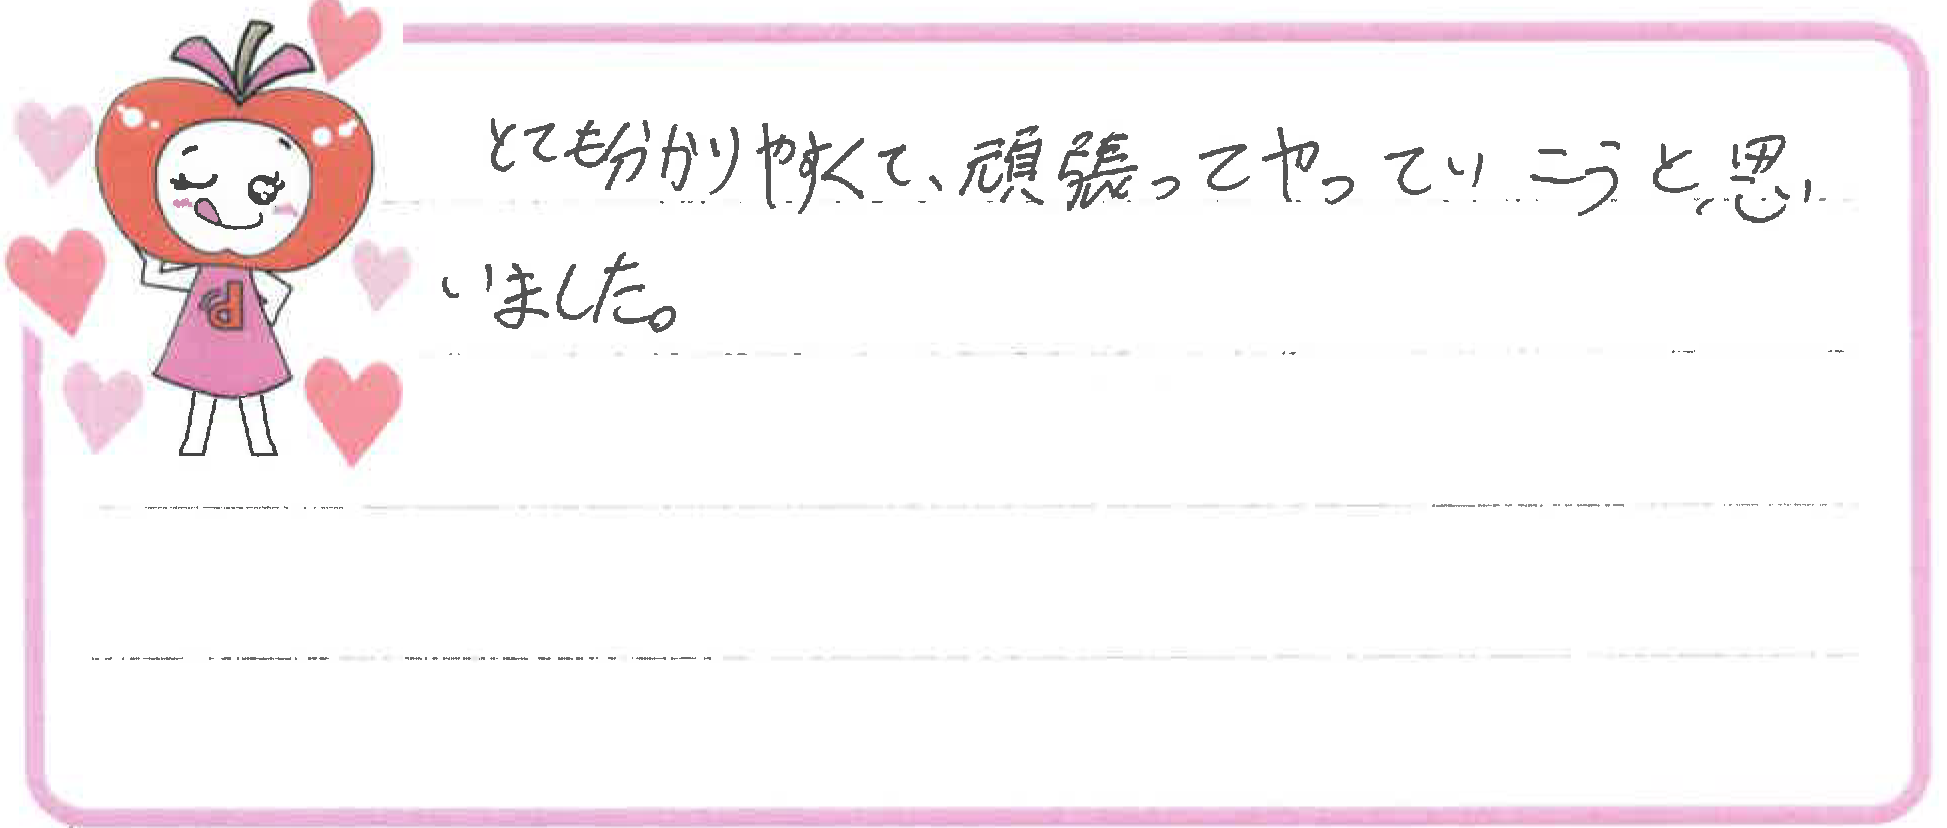 とても分かりやすくて、頑張ってやっていこうと思
いました。